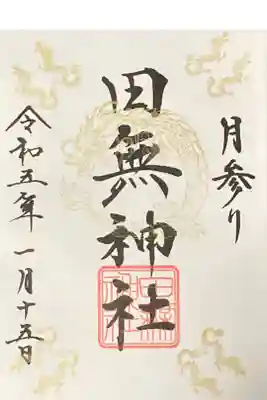 月参り
田無神社
令和五年 一月十五日